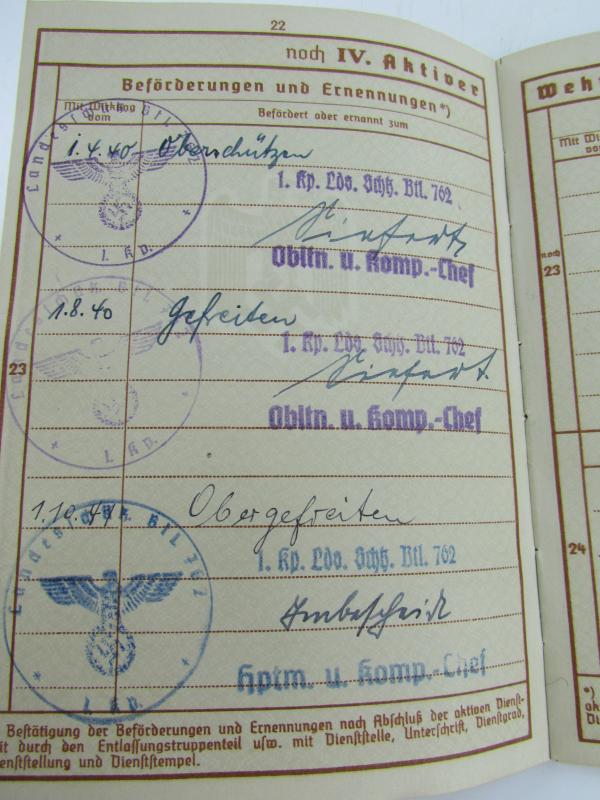 22
noch IV. Aktiver
Beförderungen und Ernennungen*)
Mit Wirkung vom
Befördert oder ernannt zum
1.4.40 Oberschützen
1. Kp. Lds. Schtz. Btl. 762
Siefert
Obltn. u. Komp.-Chef
Landesschtz. Btl. 762
1. Kp.
1.8.40 Gefreiten
1. Kp. Lds. Schtz. Btl. 762
Siefert
Obltn. u. Komp.-Chef
1. Kp.
23
1.10.41 Obergefreiten
1. Kp. Lds. Schtz. Btl. 762
Hptm. u. Komp.-Chef
Btl. 762
1. Kp.
Bestätigung der Beförderungen und Ernennungen nach Abschluß der aktiven Dienst-
it durch den Entlassungstruppenteil usw. mit Dienststelle, Unterschrift, Dienstgrad,
enststellung und Dienststempel.
Wehr
Mit Wir
vo
noch
23
24
*)